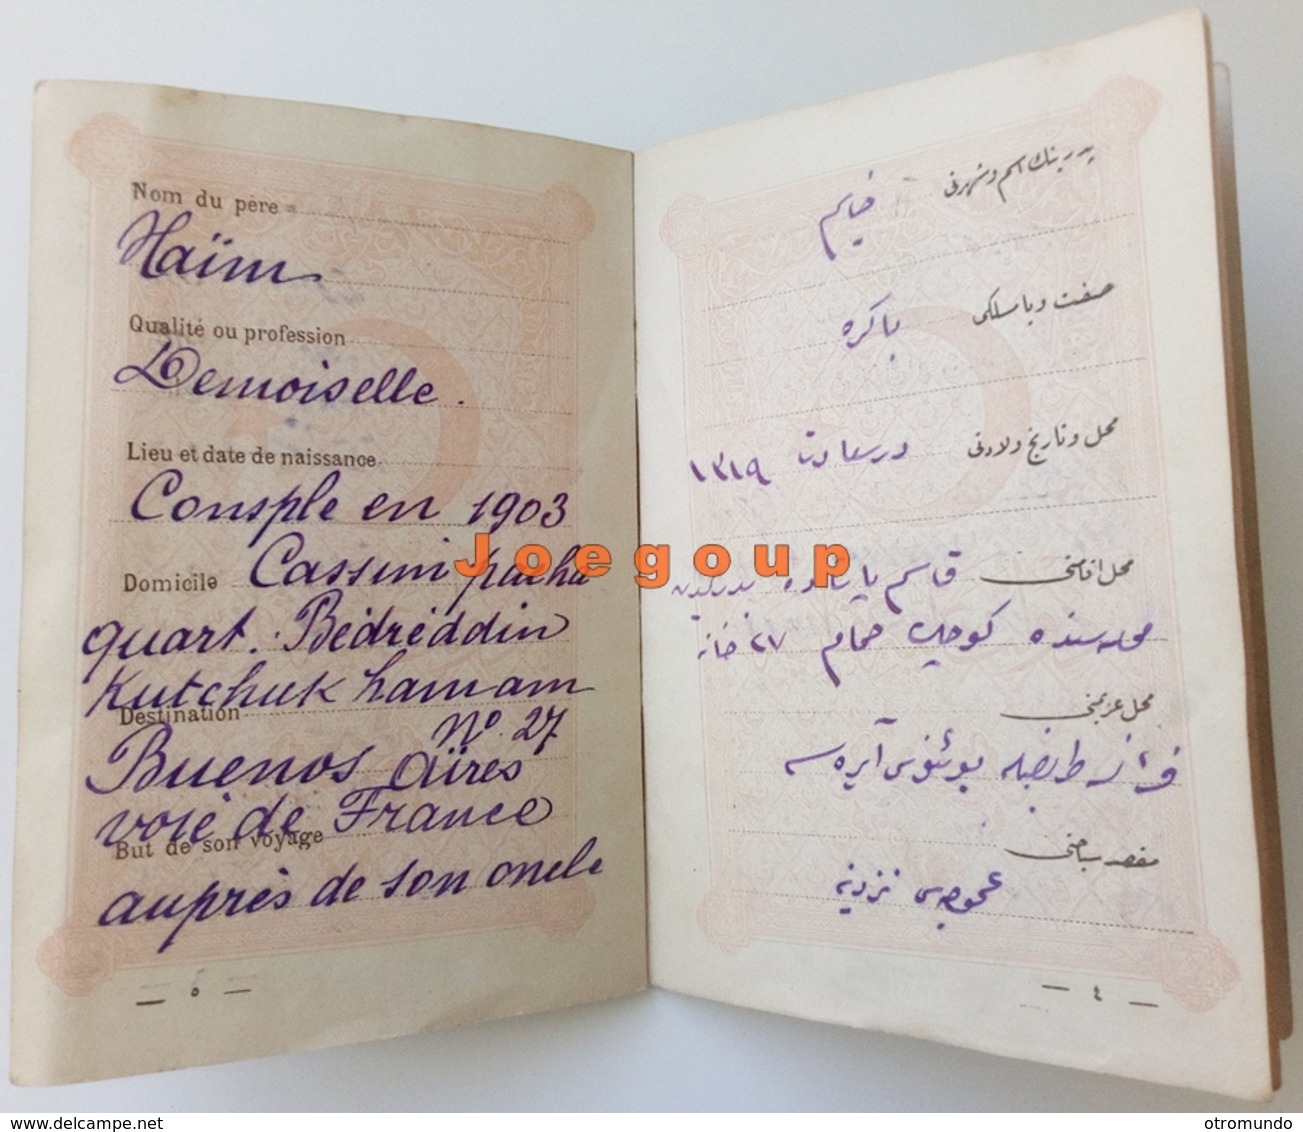 Nom du père
Haïm
Qualité ou profession
Demoiselle.
Lieu et date de naissance
Consple en 1903
Domicile Cassim pacha
quart. Bedréddin
Kutchuk hamam
Destination No. 27
Buenos Aïres
voie de France
But de son voyage
auprès de son oncle
— ٥ —
پدرینك اسم و شهرتی خیام
صفت ویا مسلكی باكره
محل و تاریخ ولادتی درسعادت ١٣١٩
محل اقامتی قاسم پاشاده بدرالدین
محله سنده كوچك حمام ٢٧ خانه
محل عزیمتی
بوئنوس آیره سه
مقصد سیاحتی
عموجه سی نزدینه
— ٤ —
Joegoup
www.delcampe.net
otromundo